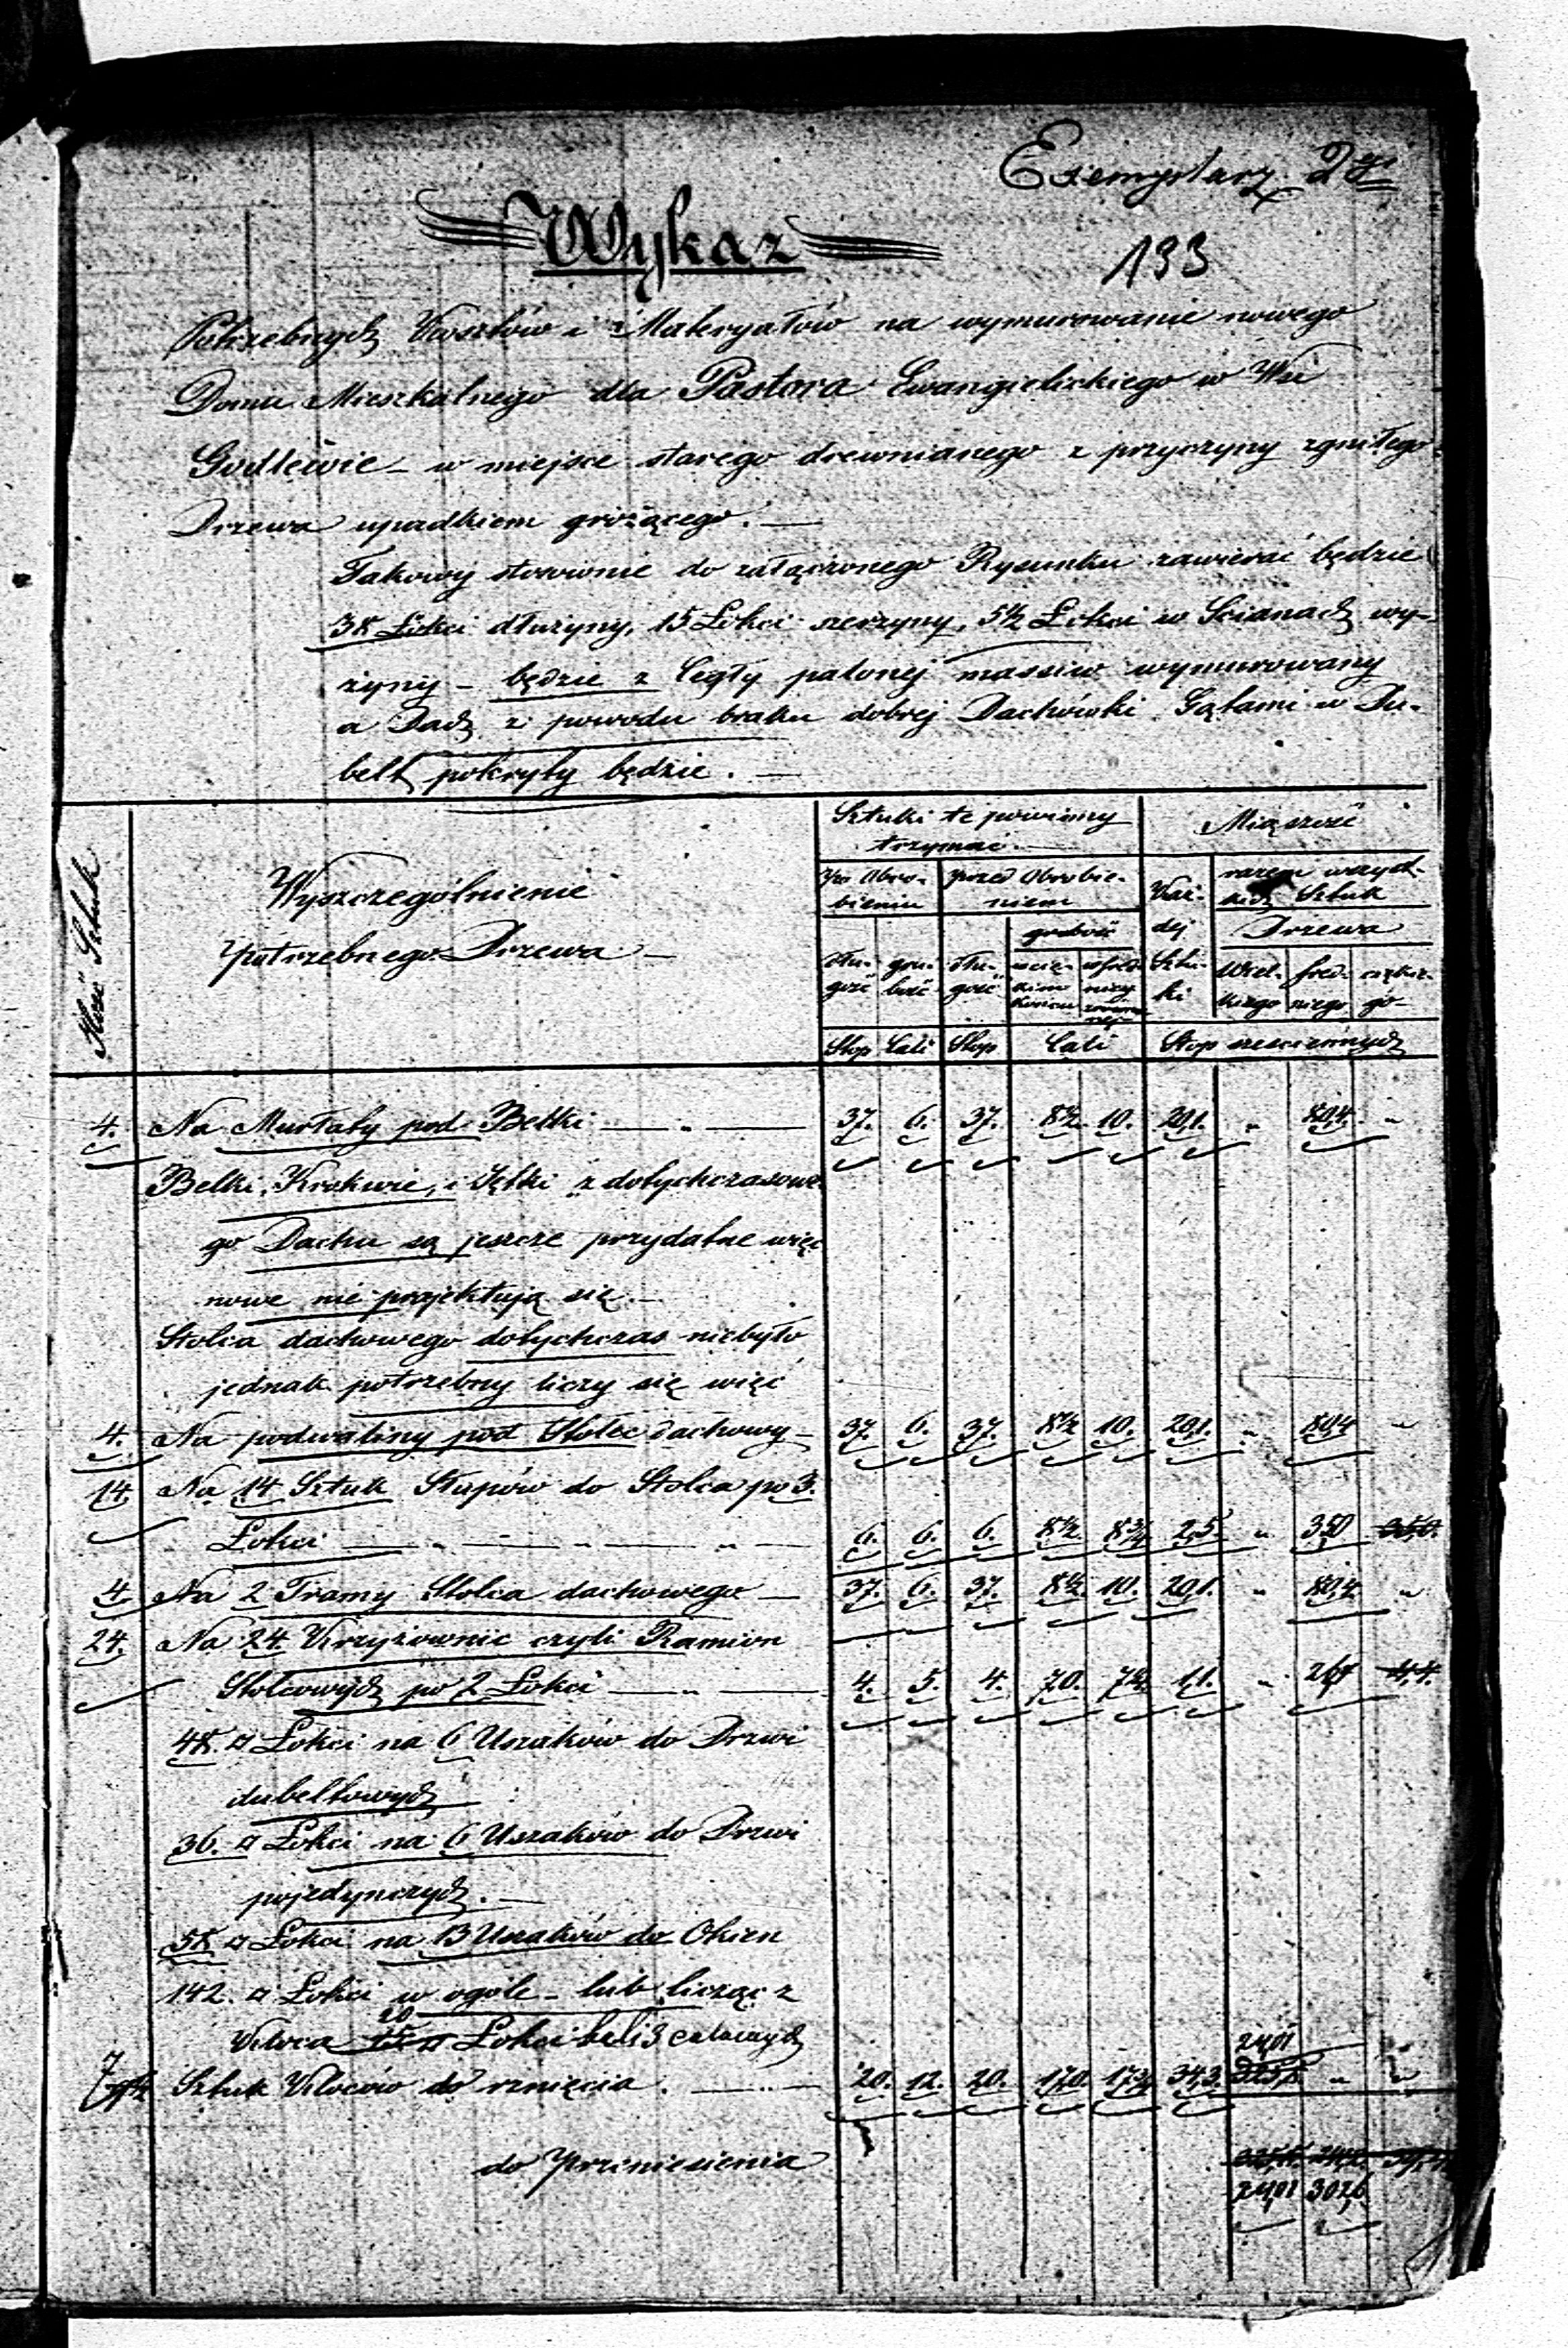 Exemplarz 2gi
Wykaz
193
Potrzebnych Kosztów i Materyałów na wymurowanie nowego
Domu Mieszkalnego dla Pastora Ewangielickiego w Wsi
Godlewie – w miejsce starego drewnianego z przyczyny zgniłego
Drzewa upadkiem grożącego. —
Takowy stosownie do załączonego Rysunku zawierać będzie
38 Łokci dłużyny, 15 Łokci szerzyny, 5½ Łokci w Scianach wy-
żyny – będzie z Cegły palonej massiw wymurowany
a Dach z powodu braku dobrej Dachówki Gątami w Du-
belt pokryty będzie. —
Ilość Sztuk
Wyszczególnienie
potrzebnego Drzewa —
Sztuki te powinny
trzymać. —
Miąszość
po Obro-
bieniu
przed Obrobie-
niem
Każ-
dej
Sztu-
ki
razem wszyst-
kich Sztuk
grubość
Drzewa
dłu-
gość
gru-
bość
dłu-
gość
w cień-
kimo
końcu
Wiel-
kiego
śred-
niego
Stop Cali Stop Cali Stop szesciennych
4. Na Murłaty pod Belki — „ — 37. 6. 37. 8½. 10. 20,1. „ 80,4. „
Belki, Krokwie, i Jętki z dotychczasowe-
go Dachu są jeszcze przydatne więc
nowe nie projektują się. —
Stolca dachowego dotychczas niebyło
jednak potrzebny liczy się więc
4. Na podwaliny pod Stolec dachowy – 37. 6. 37. 8½ 10. 20,1. „ 80,4 „
14. Na 14 Sztuk Słupów do Stolca po 3.
Łokci — „ — „ — „ — 6. 6. 6. 8½. 8¾ 2,5. „ 35,0 35,0.
4. Na 2 Tramy Stolca dachowego — 37. 6. 37. 8½. 10. 20,1. „ 80,4 „
24. Na 24. Krzyżownic czyli Ramion
Stolcowych po 2 Łokci — „ — 4. 5. 4. 7,0. 7¾. 1,1. „ 26,4
48. □ Łokci na 6 Uszaków do Drzwi
dubeltowych
36. □ Łokci na 6 Uszaków do Drzwi
pojedynczych. —
58 □ Łokci na 13 Uszaków do Okien
142. □ Łokci w ogóle – lub licząc z
20
Kloca □ Łokci beli 3 calowych
240,1
7 Sztuk Kloców do rznięcia. — „ — 20. 12. 20. 17,0. 17¾. 34,3. „ „
do przeniesienia
240,1 302,6